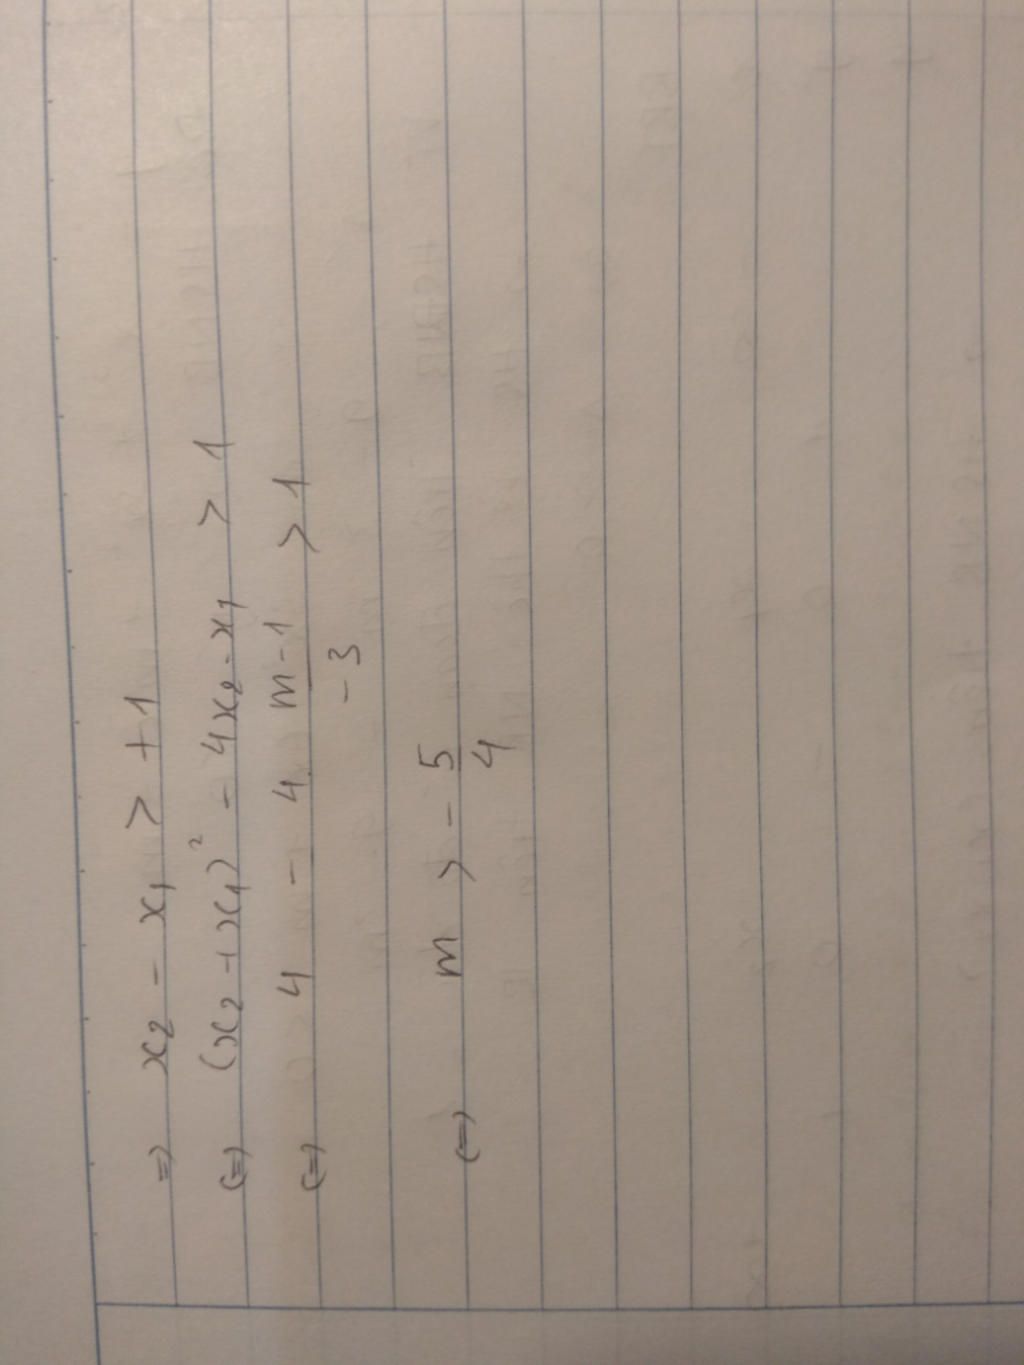 => x₂ - x₁ > +1
(=) (x₂ + x₁)² - 4x₂.x₁ > 1
(=) 4 - 4. (m-1)/(-3) > 1
(=) m > -5/4